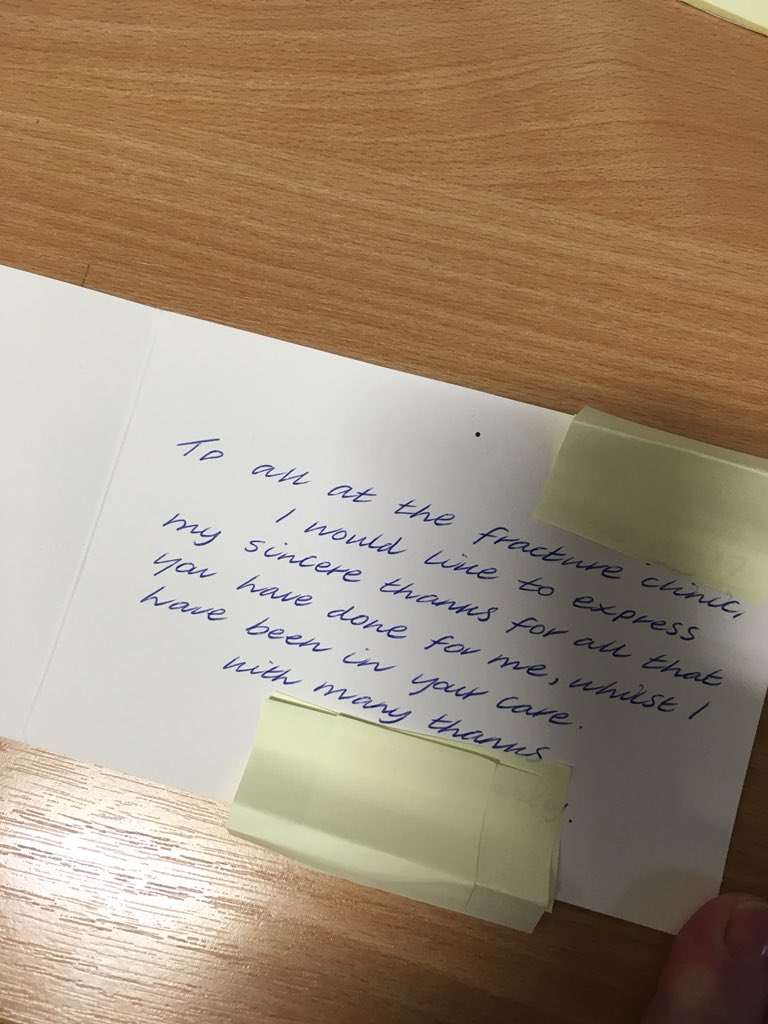 To all at the fracture clinic,
I would like to express
my sincere thanks for all that
you have done for me, whilst I
have been in your care.
with many thanks